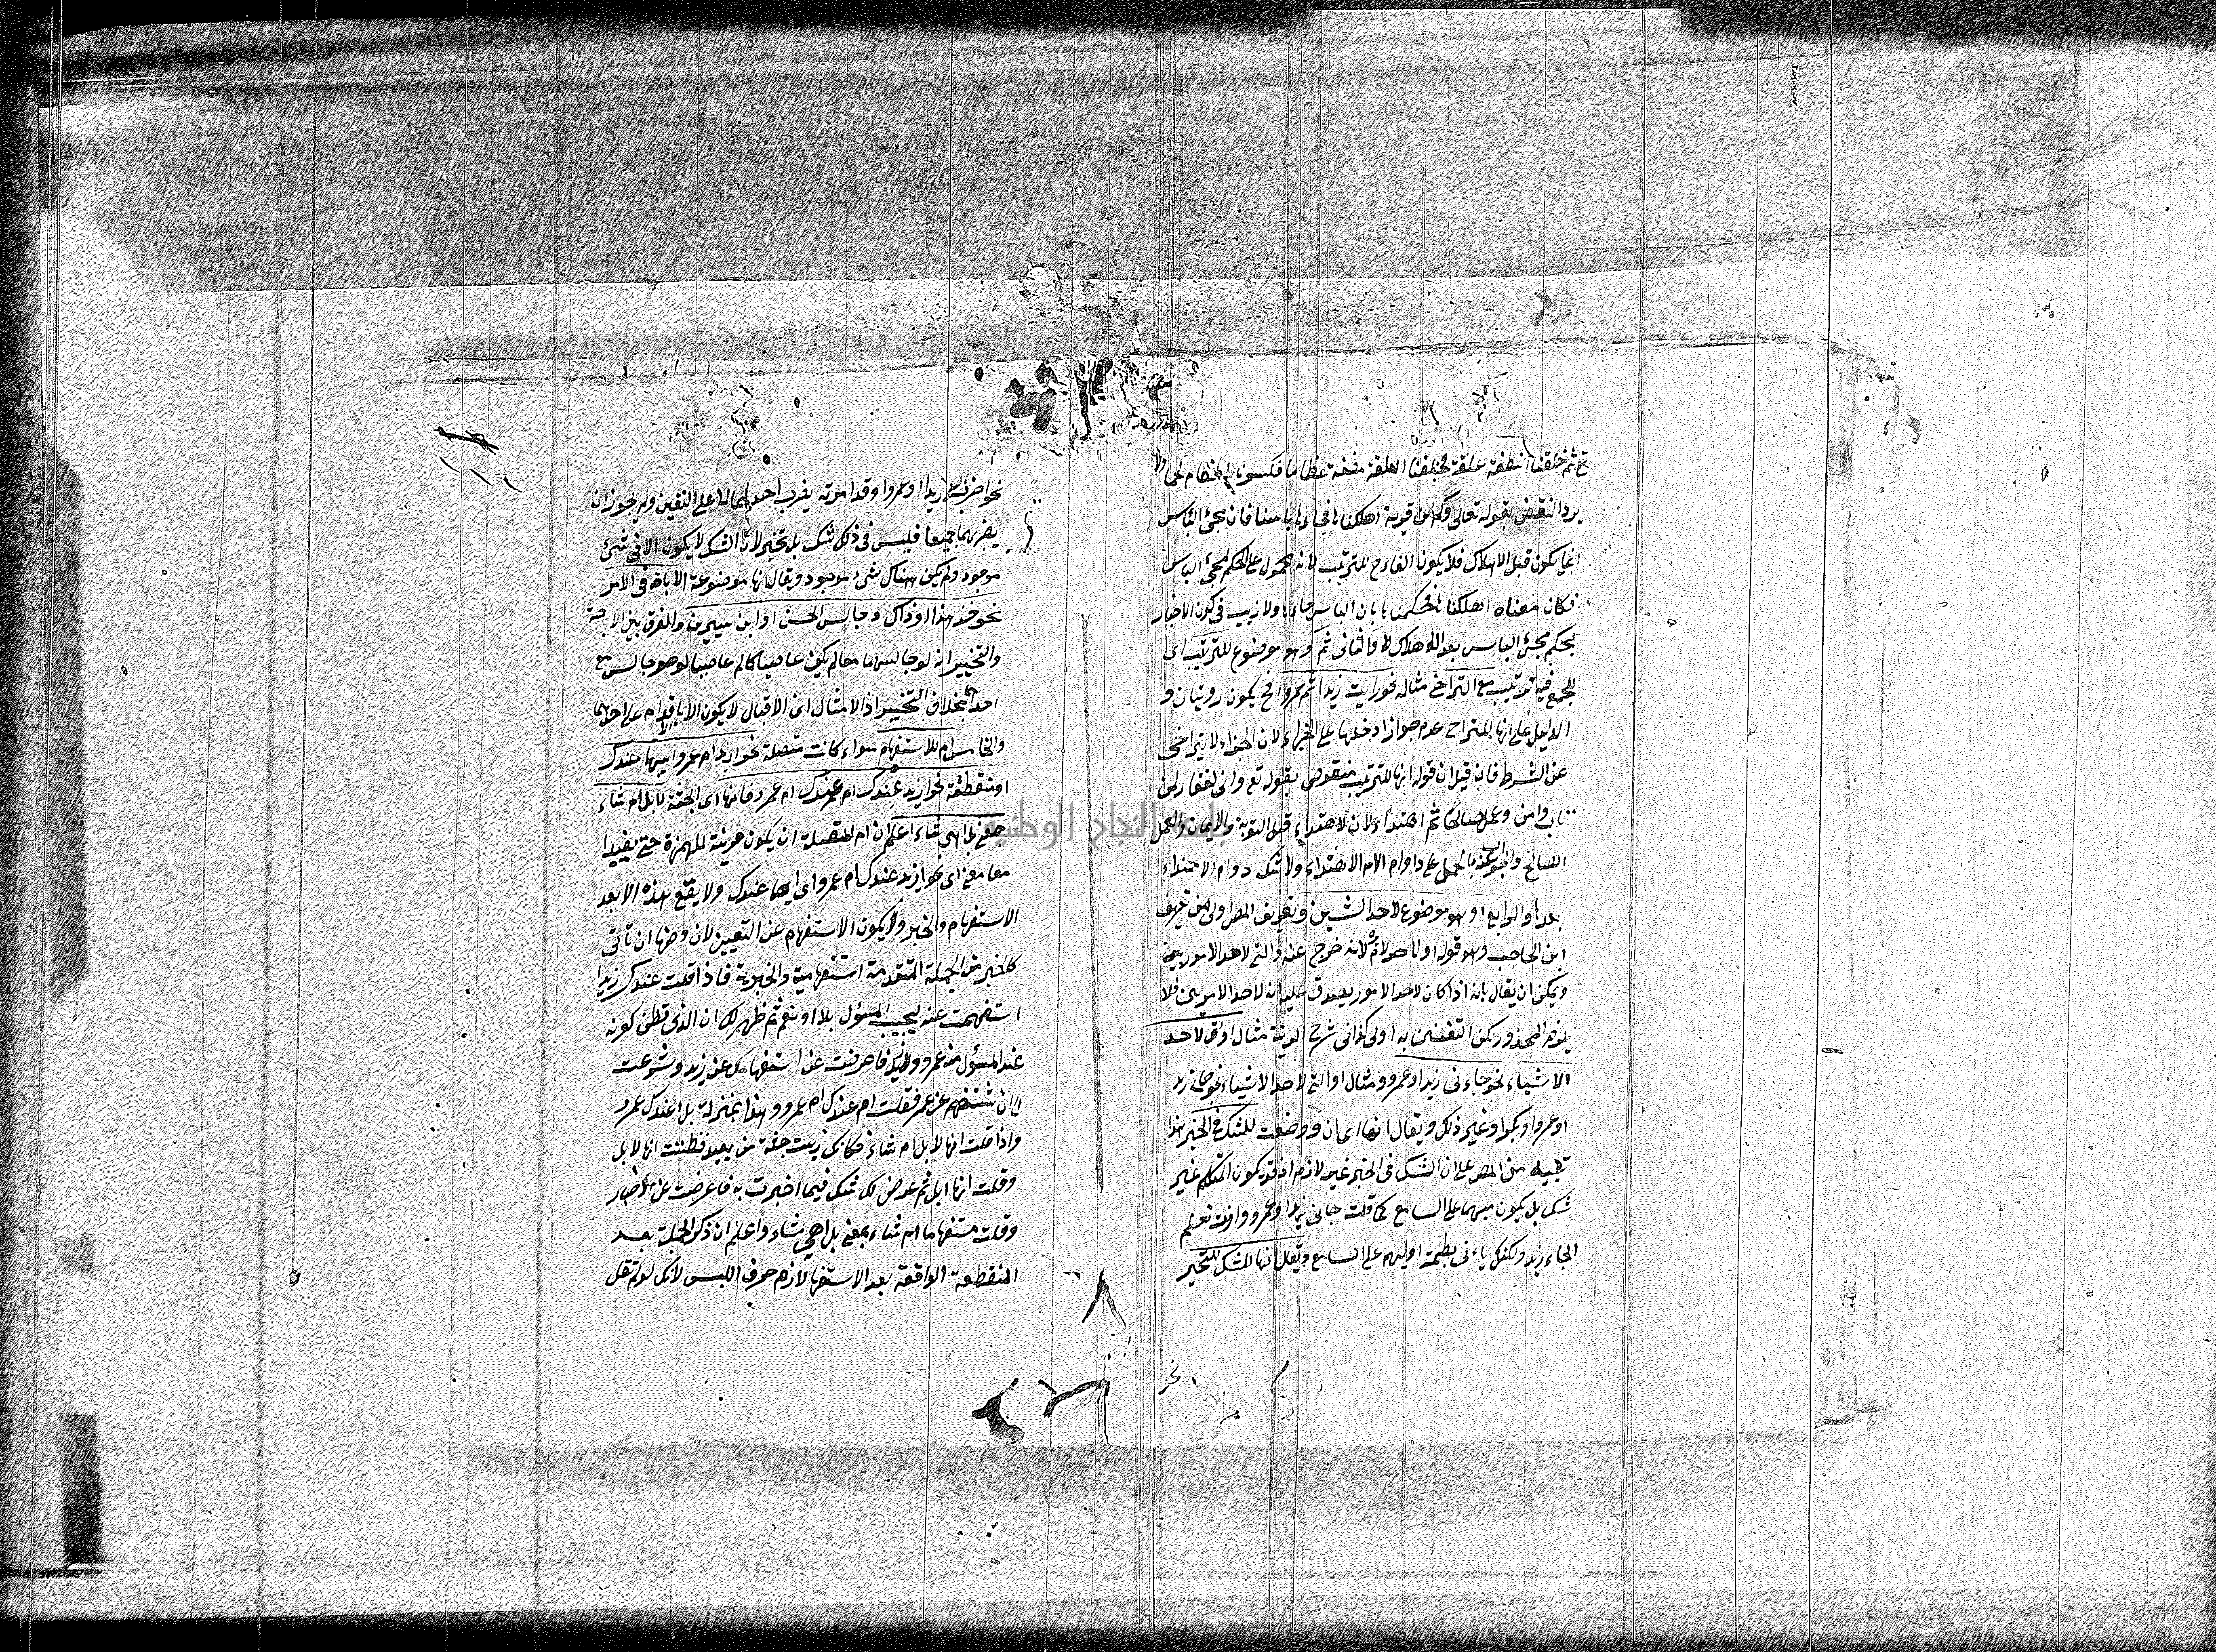 ثم خلقنا النطفة علقة فخلقنا العلقة مضغة عظاما فكسونا العظام لحما ولا
يرد النقض بقوله تعالى وكم من قرية اهلكناها فجاءها باسنا فان مجئ الباس
انما يكون قبل الاهلاك فلا يكون الفاء ح للترتيب لانه محمول على الحكم لمجئ الباس
فكان معناه اهلكناها فحكمنا بان الباس جاءها ولا ريب في كون الاخبار
بحكم مجئ الباس بعد الاهلاك والثانى ثم وهو موضوع للترتيب اى
للجمع فيه ترتيب مع التراخى مثاله نحو رايت زيدا ثم عمروا فح يكون رويتان و
الدليل على انها للتراخى عدم جواز ادخلها على الجزاء لان الجزاء لا يتراخى
عن الشرط فان قيل ان قوله انها للترتيب منقوض بقوله تع وانى لغفار لمن
تاب وامن وعمل صالحا ثم اهتدى لان الاهتداء قبل التوبة والايمان والعمل
الصالح واجيب عنه بالحمل على دوام الاهتداء ولا شك دوام الاهتداء
بعدها والرابع او وهو موضوع لاحد الشيئين وتعريف المص اولى من تعريف
ابن الحاجب وهو قوله او لاحد الامور لانه خرج عنه والتى لاحد الامرين
ويمكن ان يقال بانه اذا كان لاحد الامور يصدق عليه انه لاحد الامرين فلا
يلزم المحذور لكن التفسير به اولى كذا فى شرح مثال او لاحد
الاشياء نحو جاءنى زيد او عمرو ومثال او التى لاحد الاشياء نحو جاءنى زيد
او عمرو او بكر او غير ذلك ويقال انها اى ان او وضعت للشك فى الخبر هذا
تنبيه من المص على ان الشك فى الخبر غير لازم اذ قد يكون المتكلم غير
شك بل يكون مبهما على السامع كما قلت جاءنى زيد او عمرو وانت تعلم
الجاء زيد ولكنك اوليهم على السامع ويقال انها للشك للتخيير
نحو
نحو اضرب زيدا او عمروا وقد امرته يضرب احدهما لا على التعيين ولم يجوز ان
يضربهما جميعا فليس فى ذلك شك بل تخيير لان الشك لا يكون الا فى شئ
موجود ولم يكن هناك شئ موجود ويقال انها موضوعة الاباحة فى الامر
نحو خذ هذا او ذاك وجالس الحسن او ابن سيرين والفرق بين الاباحة
والتخيير انه لو جالسهما معا لم يكن عاصيا كما لم عاصيا لو هو جالس مع
احدهما بخلاف التخيير اذ الامتثال اى الاقبال لا يكون الا باقدام على احدهما
والخامس ام للاستفهام سواء كانت متصلة نحو ازيد ام عمرو ايهما عندك
او منقطعة نحو ازيد عندك ام عندك ام عمرو فانها اى الجثة لابل ام شاء
بمعنى بل اهى شاء اعلم ان ام المتصلة ان يكون قرينة للهمزة حتى يفيدا
معا معنى اى نحو ازيد عندك ام عمرو اى ايهما عندك ولا يقع هذه الا بعد
الاستفهام والخبر ولا يكون الاستفهام عن التعيين لان وضعها ان تاتى
كالخبر عن الجملة المتقدمة استفهامية والخبرية فاذا قلت عندك زيدا
استفهمت عنه ليجيب المسئول بلا او نعم ثم ظهر لك ان الذى تظن كونه
عند المسئول عنه عمرو فاعرضت عن استفهامك عن زيد وشرعت
الى ان تستفهم عن عمرو فقلت ام عندك ام عمرو وهذا بمنزلة بل اعندك عمرو
واذا قلت انها لابل ام شاء فكانك رايت جثة من بعيد فظننت انها لابل
وقلت انها ابل ثم عرض لك شك فيما اخبرت به فاعرضت عن الاخبار
وقلت مستفهما ام شاء بمعنى بل اهى شاء واعلم ان ذكر الجملة بعد
المنقطعة الواقعة بعد الاستفهام لازم خوف اللبس لانك لو لم تقل
النجاح الوطنية